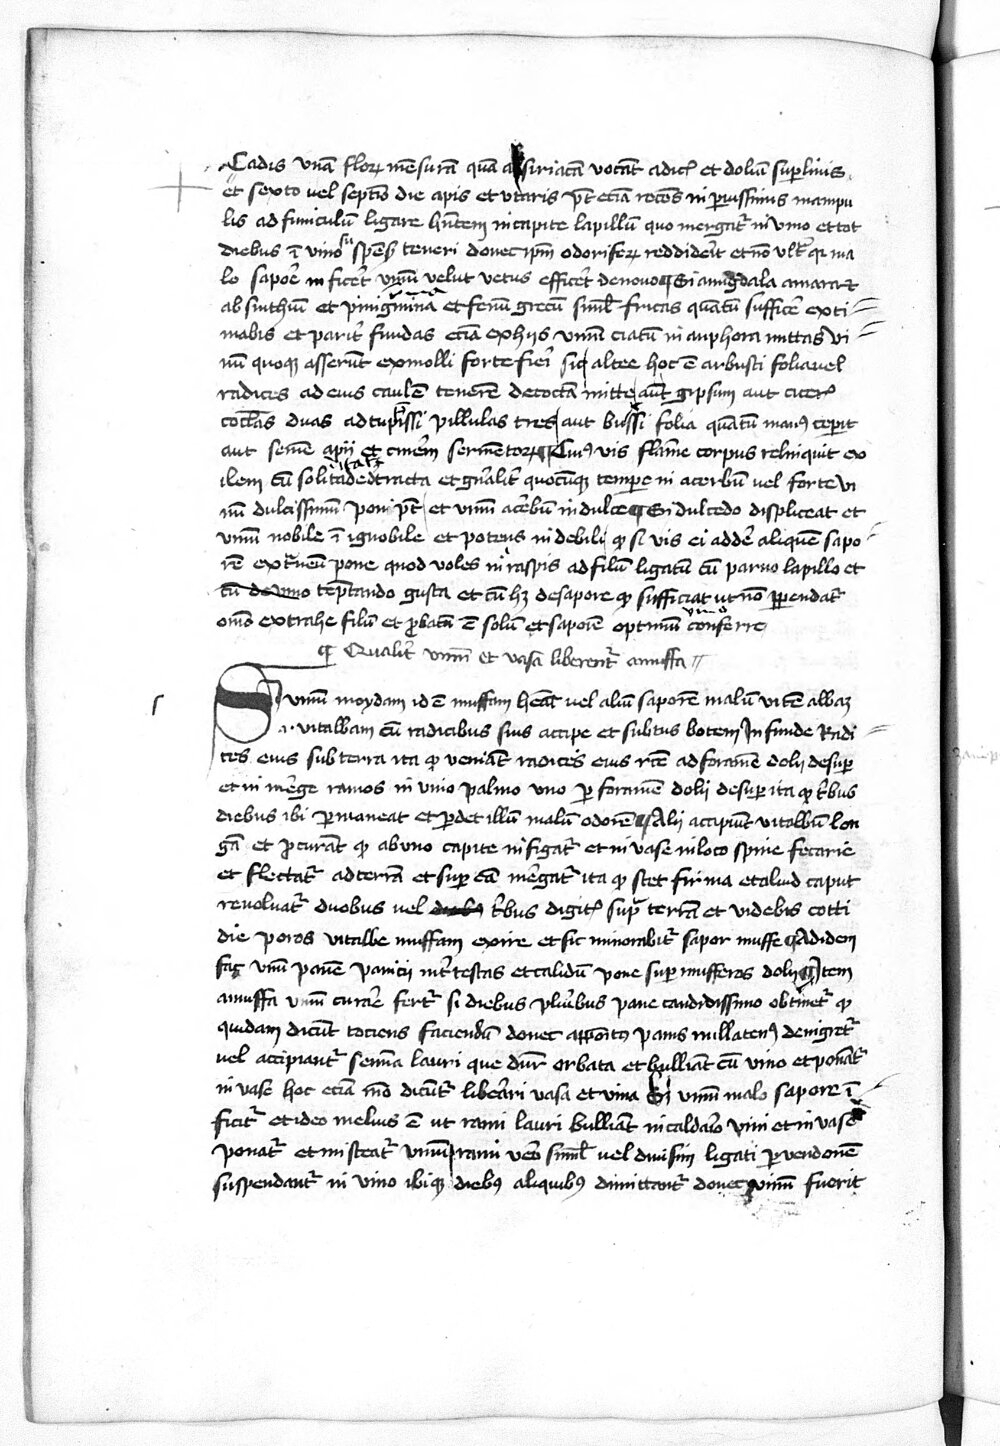 Cadis vnā florꝫ mēsurā quā assiriacā vocāt adicꝭ et doliū suplinis
et sexto vel septīo die apis et vtaris pt̄ eciā racēos in pūissimis mampu
lis ad funiculū ligare hn̄tem in capite lapillū quo mergat᷑ in vino et tot
diebus ī vino suspēsꝫ teneri donec ipm̄ odoriferꝫ reddiderīt et nō vlt᷑ qꝫ ma
lo sapoē inficēt vinū velut vetus efficēt de nouo Si amigdala amara et
absinthiū et pini gūmina et fenū grecū siml̄ fricas quātū sufficē exti
mabis et parit᷑ fundas eciā ex hijs vnū ciatū in anphora mittas vi
nū quoqꝫ asserūt ex molli forte fieri siq̄ altee hoc ē arbusti folia vel
radices ad eius caulē tenerē decoctā mitte aut gipsum aut cicerꝭ
coclēas duas ad cupr̄issi pillulas tres aut bussi folia quātū manꝰ cepit
aut semē apij et cinērm sermētorꝫ Cuiꝰ vis flāme corpus relinquit ex
ilem cū soliditate detracta et gn̄alit᷑ quocūqꝫ tempe in acerbū vel forte vi
nū dulcissimū poni pt̄ et vinū acerbū in dulce Si dulcedo displiceat et
vinū nobile ī ignobile et potens in debili qꝫ si vis ei addē aliquē sapo
rē extn̄eū pone quod voles in raspis ad filū ligatū cū paruo lapillo et
cū de vino temptando gusta et cū hꝫ de sapore qꝫ sufficiat ut nō ppendat᷑
om̄o extrahe filū et pbatū ē solū et saporē optimū vino conferre
Qualit᷑ vinū et vasa liberent᷑ a muffa
Si vinū moydam id ē muffam heāt vel aliū saporē malū vitē albaꝫ
.i. vitalbam cū radicibus suis accipe et subtus botem infunde Radi
ces eius sub terra ita qꝫ veniāt radices eius rcē ad foramē dolij desup
et in mēge ramos in vino palmo vno p foramē dolij desup ita qꝫ tribus
diebus ibi pmaneat et pdet illū malū odorē Alij accipiūt vitalbū lon
gā et pcurāt qꝫ ab vno capite in figat᷑ et in vase in loco spine fecarie
et flectat᷑ ad terrā et sup eā mēgat᷑ ita qꝫ stet firma et aliud caput
reuoluat᷑ duobus vel tribus digitꝭ sup terrā et videbis cotti
die poros vitalbe muffam exire et sic minorabit᷑ sapor muffe Ad idem
fac vnū panē panicij int᷑ testas et calidū pone sup mufferos dolij Item
a muffa vinū curare fert᷑ si diebus plurībus pane candidissimo obtinet᷑ qꝫ
quidam dicūt tociens faciendū donec appoitꝰ panis nullatenꝰ denigret᷑
vel accipiant᷑ semīa lauri que dūr orbata et bulliāt cū vino et ponāt᷑
in vase hoc eciā mō dicūt᷑ liberari vasa et vina Si vinū malo sapore ī
ficit᷑ et ideo melius ē ut rami lauri bulliant in caldario vini et in vase
ponāt᷑ et misceat᷑ vinū rami vēo siml̄ vel diuisim ligati p vendonē
suspendant᷑ in vino ibiqꝫ diebꝰ aliquibꝰ dimittant᷑ donec vinū fuerit